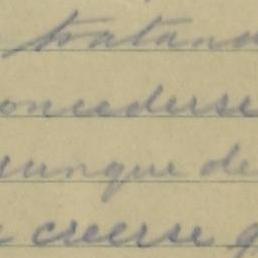 tratan
concederse
aunque de
creerse q